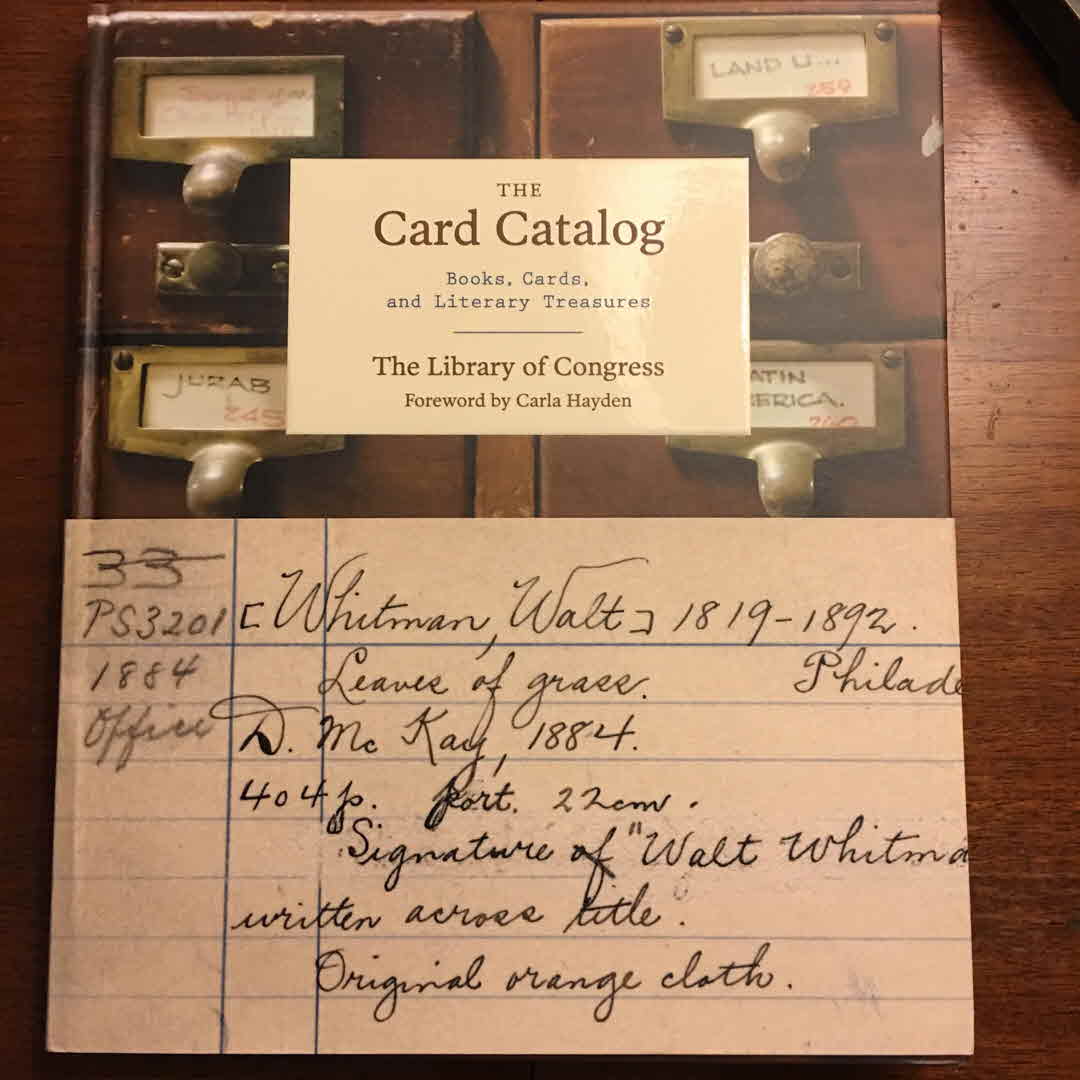 LAND U...
259
THE
Card Catalog
Books, Cards,
and Literary Treasures
The Library of Congress
Foreword by Carla Hayden
JURAB
245
ATIN
ERICA.
260
33
PS3201 [Whitman, Walt] 1819-1892.
1884 Leaves of grass. Philade
Office D. McKay, 1884.
404 p. port. 22cm.
Signature of "Walt Whitma
written across title.
Original orange cloth.